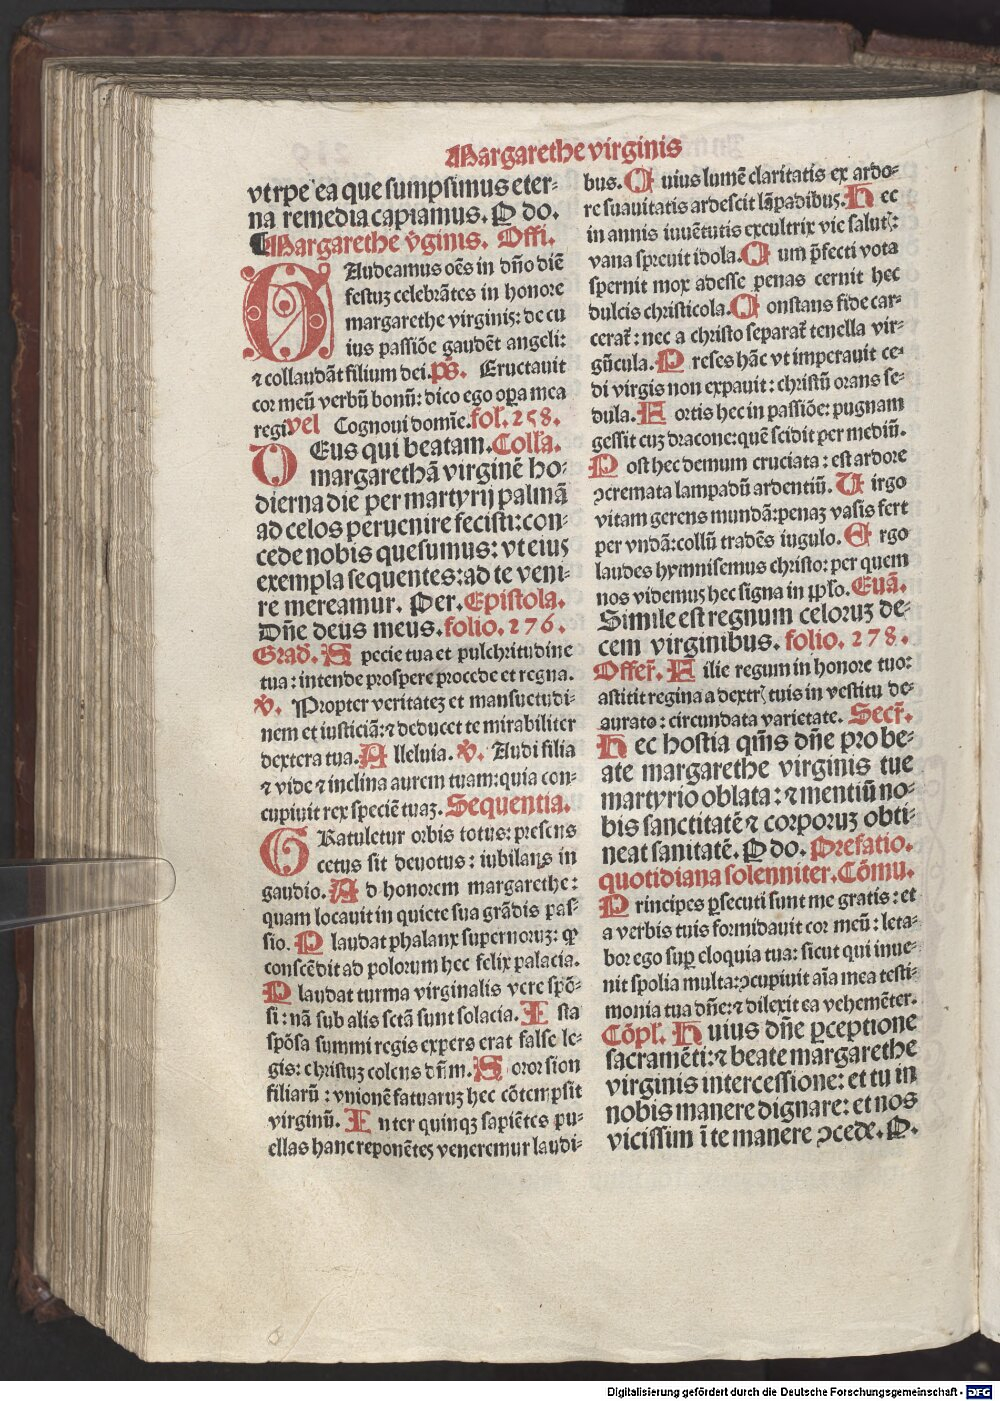 Margarethe virginis
vt rpe ea que sumpsimus eter⸗
na remedia capiamus. P do.
Margarethe v̄ginis. Offi.
GAudeamus oēs in dn̄o diē
festuꝫ celebrātes in honore
margarethe virginis: de cu
ius passiōe gaudēt angeli:
⁊ collaudāt filium dei. ps. Eructauit
cor meū verbū bonū: dico ego oꝑa mea
regi vel Cognoui domīe. fol. 258.
DEus qui beatam. Coll̄a.
margarethā virginē ho⸗
dierna die per martyrij palmā
ad celos peruenire fecisti: con⸗
cede nobis quesumus: vt eius
exempla sequentes: ad te veni⸗
re mereamur. Per. Epistola.
Dn̄e deus meus. folio. 276.
Grad. S pecie tua et pulchritudine
tua: intende prospere procede et regna.
v̄. Propter veritateꝫ et mansuetudi⸗
nem et iusticiā: ⁊ deducet te mirabiliter
dextera tua. A lleluia. v̄. Audi filia
⁊ vide ⁊ inclina aurem tuam: quia con⸗
cupiuit rex speciē tuaꝫ. Sequentia.
GRatuletur orbis totus: presens
cetus sit deuotus: iubilans in
gaudio. A d honorem margarethe:
quam locauit in quiete sua grādis pas⸗
sio. P laudat phalanx supernoruꝫ: ꝙ
conscēdit ad polorum hec felix palacia.
P laudat turma virginalis vere spō⸗
si: nā sub alis sctā sunt solacia. I sta
spōsa summi regis expers erat false le⸗
gis: christuꝫ colens dn̄m. S oror sion
filiarū: vnionē fatuaruꝫ hec cōtempsit
virginū. I nter quinqꝫ sapiētes pu⸗
ellas hanc reponētes veneremur laudi⸗
bus. C uius lumē claritatis ex ardo⸗
re suauitatis ardescit lāpadibus. H ec
in annis iuuētutis excultrix vie salutꝭ:
vana spreuit idola. C um p̄fecti vota
spernit mox adesse penas cernit hec
dulcis christicola. C onstans fide car⸗
cerat̄: nec a christo separat̄ tenella vir⸗
gūcula. P reses hāc vt imperauit ce⸗
di virgis non expauit: christū orans se⸗
dula. F ortis hec in passiōe: pugnam
gessit cuꝫ dracone: quē scidit per mediū.
P ost hec demum cruciata: est ardore
ↄcremata lampadū ardentiū. V irgo
vitam gerens mundā: penaꝫ vasis fert
per vndā: collū tradēs iugulo. E rgo
laudes hymnisemus christo: per quem
nos videmus hec signa in pp̄lo. Euā.
Simile est regnum celoruꝫ de⸗
cem virginibus. folio. 278.
Offer̄. F ilie regum in honore tuo:
astitit regina a dextrꝭ tuis in vestitu de⸗
aurato: circundata varietate. Secr̄.
H ec hostia qm̄s dn̄e pro be⸗
ate margarethe virginis tue
martyrio oblata: ⁊ mentiū no⸗
bis sanctitatē ⁊ corporuꝫ obti⸗
neat sanitatē. P do. Prefatio.
quotidiana solenniter. Cōmu.
P rincipes ꝑsecuti sunt me gratis: et
a verbis tuis formidauit cor meū: leta⸗
bor ego suꝑ eloquia tua: sicut qui inue⸗
nit spolia multa: ↄcupiuit aīa mea testi⸗
monia tua dn̄e: ⁊ dilexit ea vehemēter.
Cōpl̄. H uius dn̄e ꝑceptione
sacramēti: ⁊ beate margarethe
virginis intercessione: et tu in
nobis manere dignare: et nos
vicissim ī te manere ↄcede. P.
Digitalisierung gefördert durch die Deutsche Forschungsgemeinschaft - DFG